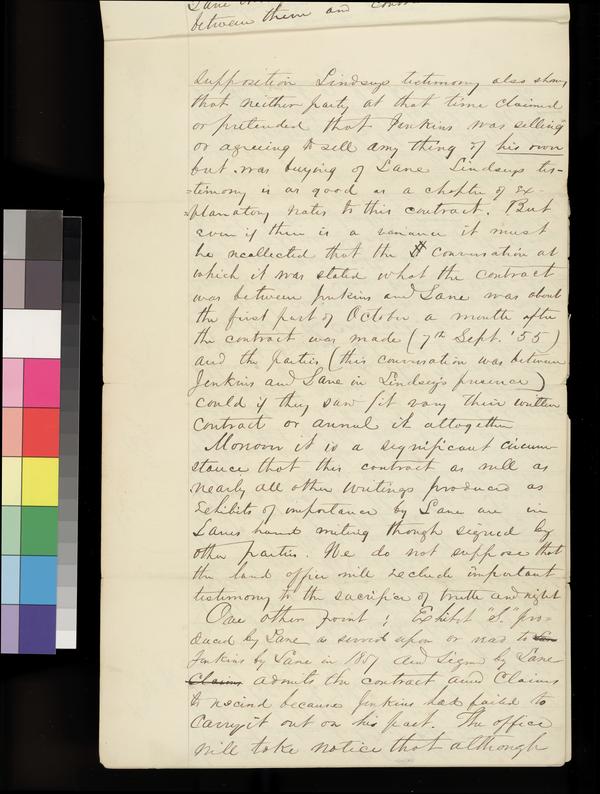 between them and
supposition Lindseys testimony also shows
that neither party at that time claimed
or pretended that Jenkins was selling
or agreeing to sell any thing of his own
but was buying of Lane Lindseys tes-
=timony is as good as a chapter of ex-
=planatory notes to this contract. But
even if there is a variance it must
be recollected that the conversation at
which it was stated what the contract
was between Jenkins and Lane was about
the first part of October a month after
the contract was made (7th Sept. '55)
and the parties (this conversation was between
Jenkins and Lane in Lindsey's presence)
could if they saw fit vary their written
contract or annul it altogether
Moreover it is a significant circum-
stance that this contract as well as
nearly all other writings produced as
Exhibits of importance by Lane are in
Lanes hand writing though signed by
other parties. We do not suppose that
the land office will exclude important
testimony to the sacrifice of truth and right
One other point; Exhibit "S." pro-
duced by Lane as served upon or read to
Jenkins by Lane in 1857 and signed by Lane
Claims admits the contract and Claims
to rescind because Jenkins had failed to
Carry it out on his part. The office
will take notice that although